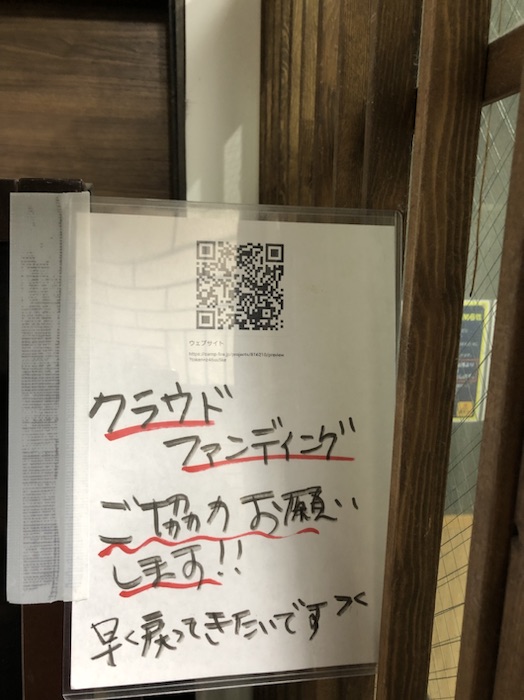 ウェブサイト
クラウド
ファンディング
ご協力お願い
します!!
早く戻ってきたいですつく